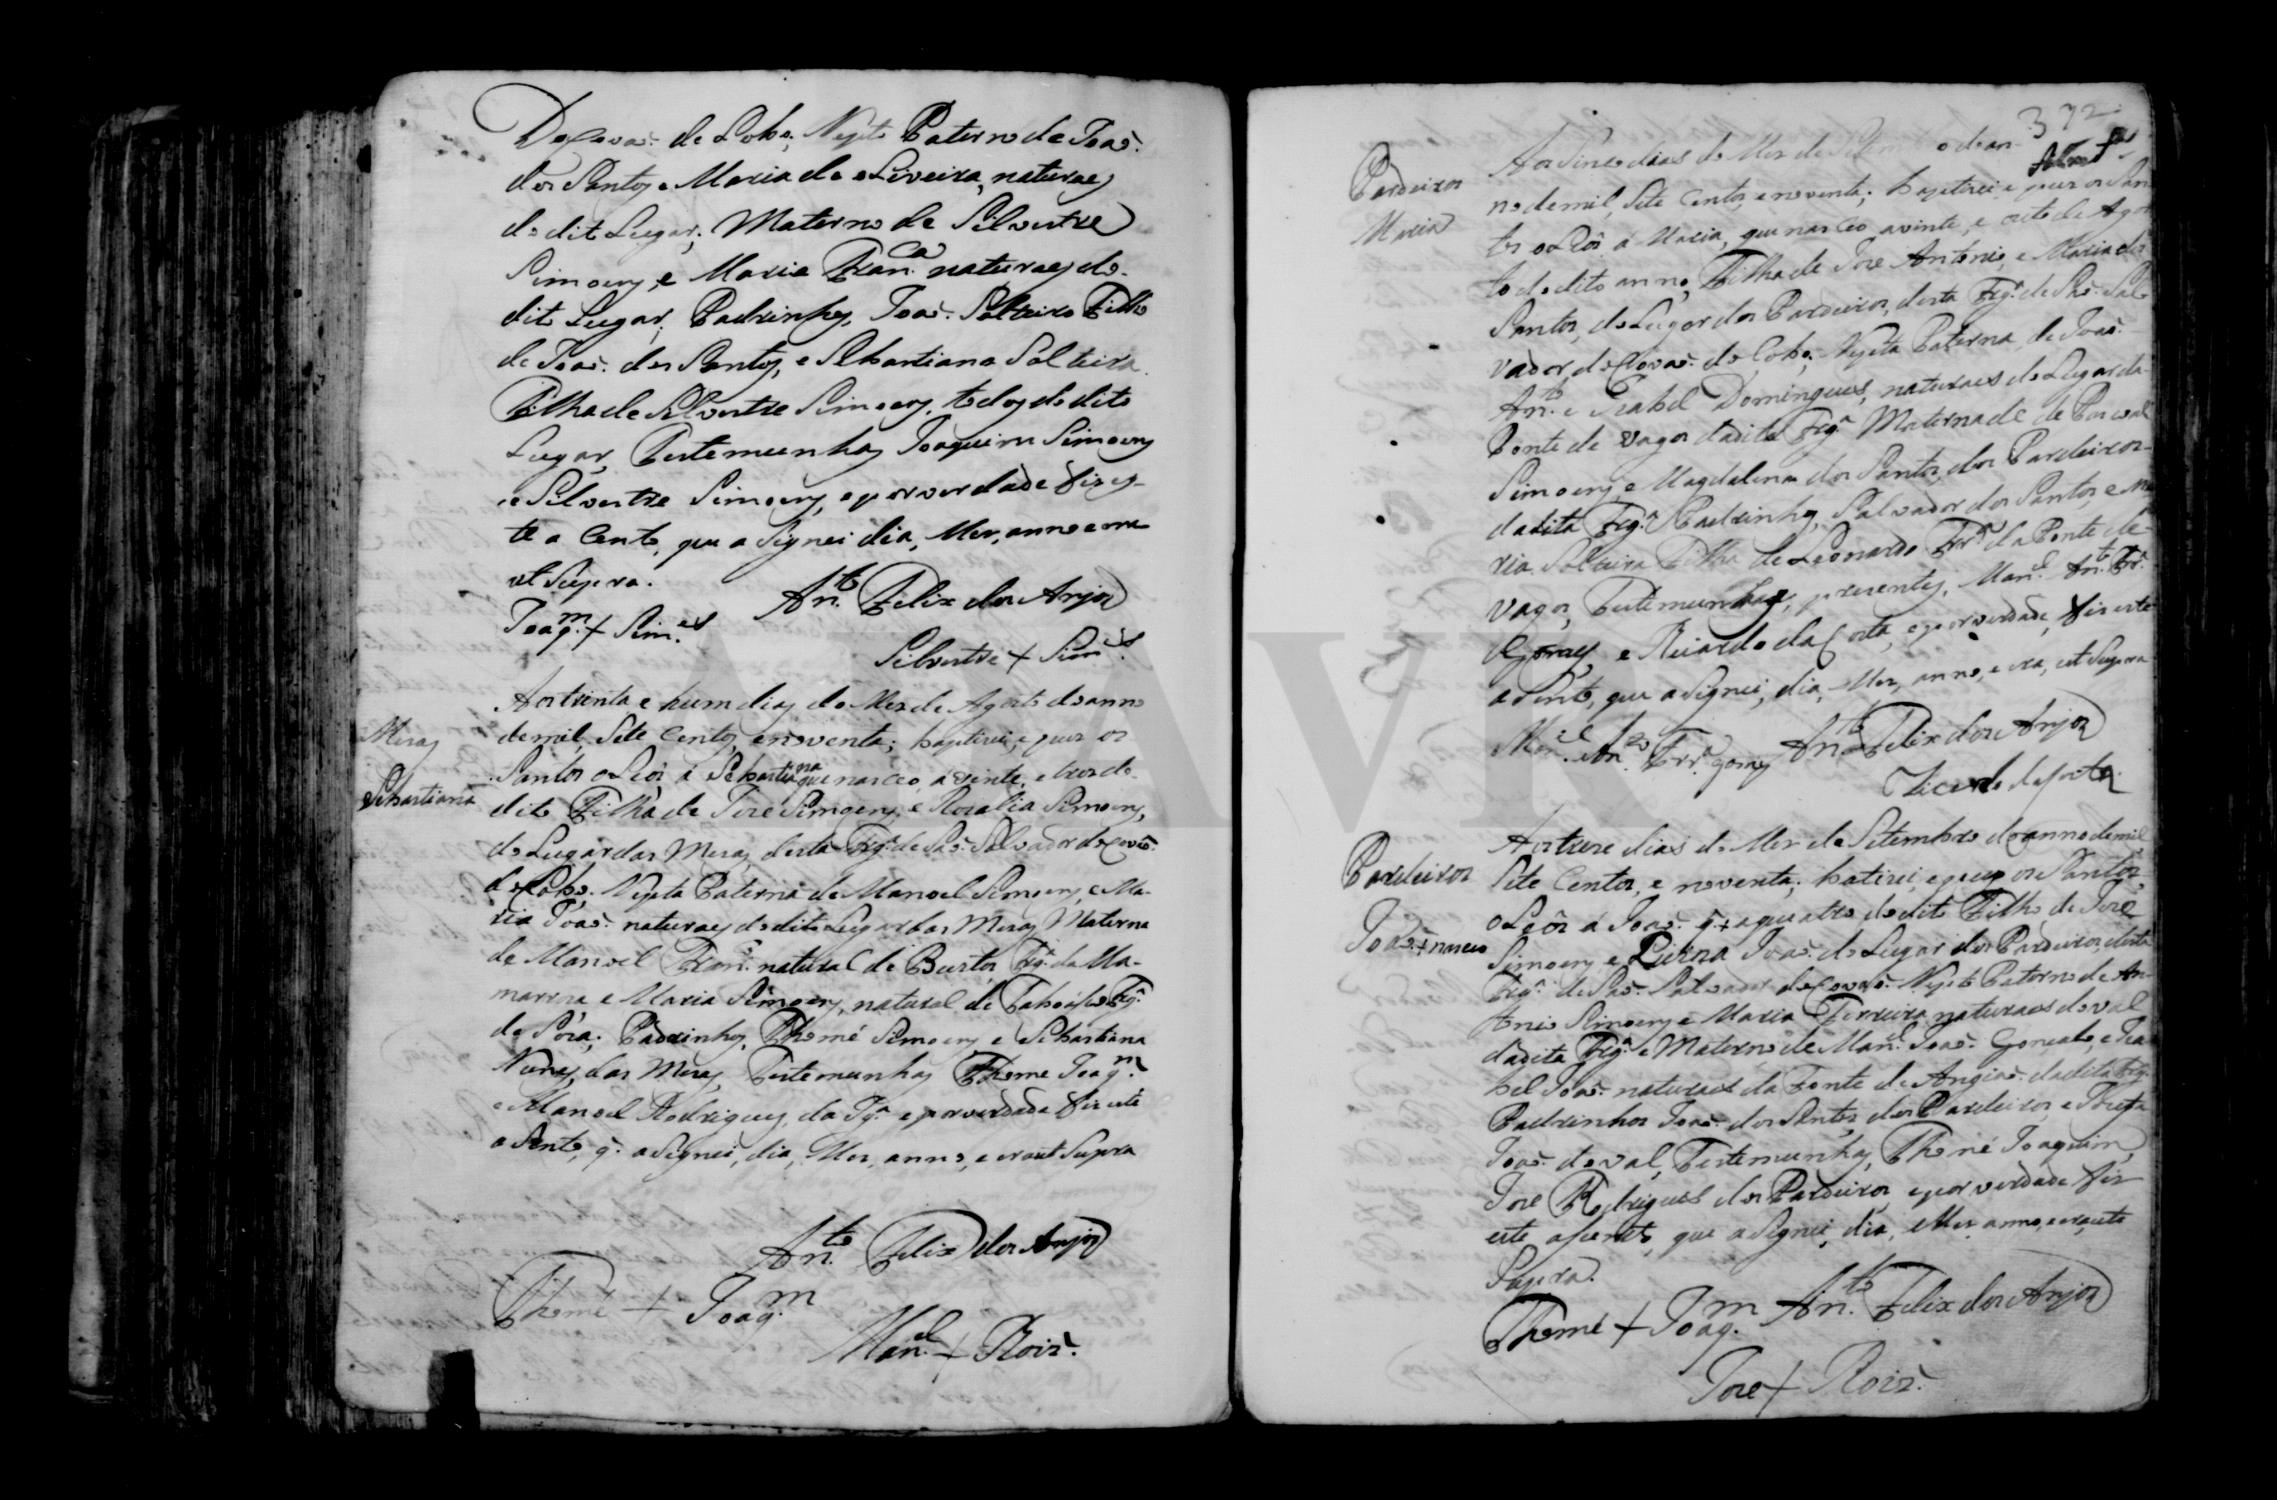 Do Covaõ. do Lobo; Neyto Paterno de Joaõ.
dos Santos, e Maria de oLiveira, naturaes
do dito Lugar; Materno de Silvestre
Simoens, e Maria Fran.ca naturaes do
dito Lugar; Padrinhos, Joaõ. Solteiro Filho
de Joaõ. dos Santos, e Sebastiana Solteira
Filha de Silvestre Simoens, todos do dito
Lugar, Testemunhas Joaquim Simoens
e Silvestre Simoens, e por verdade fiz es-
te a Cento, que a Signei dia, Mes, anno e era
ut Supra.
An.to Felix dos Anjos
Joaq.m + Sim.es
Silvestre + Sim.es
Mesas
Sebastiana
Aos trinta e hum dias do Mes de Agosto do anno
de mil, Sete Centos, e noventa; baptizei, e puz os
Santos oLeos á Sebastiana que nasceo, a vinte, e tres do
dito Filha de Jose Simoens, e Rosalia Simoens,
do Lugar das Mesas desta Frg.ª de Saõ. Salvador do Covaõ.
do Lobo; Neyta Paterna de Manoel Simoens, e Ma-
ria Joaõ. naturaes do dito Lugar das Mesas Materna
de Manoel Fran.co natural de Bustos Frg.ª da Ma-
marroza e Maria Simoens, natural de Taboaço Frg.ª
de Soza; Padrinhos, Thomé Simoens e Sebastiana
Nunes, das Mesas, Testemunhas Thome Joaq.m
e Manoel Rodrigues, da Fg.ª e por verdade fiz este
a Sento, q̃. a Signei, dia, Mes, anno, e era ut Supra
An.to Felix dos Anjos
Thomé + Joaq.m
Man.el + Roiz.
372
Pardeiros
Maria
Aos Sinco dias do Mes de Setembro do an-
no de mil, Sete Centos, e noventa; baptizei e puz os San
tos oLeos á Maria, que nasceo a vinte, e oito de Agos
to do dito anno, Filha de Jose Antonio, e Maria dos
Santos, do Lugar dos Pardeiros, desta Frg.ª de Saõ. Sal
vador do Covaõ. do Lobo; Neyta Paterna de Joaõ.
An.to e Izabel Domingues, naturaes do Lugar da
Ponte de Vagos da dita Frg.ª Materna de de Pascoal
Simoens, e Magdalena dos Santos, dos Pardeiros
da dita Frg.ª Padrinhos, Salvador dos Santos, e Ma
ria Solteira Filha de Leonardo Frr.ª da Ponte de
Vagos, Testemunhas, presentes, Man.el An.to Frr.ª
Gomes, e Ricardo da Costa, e por verdade, fiz este
a Sento, que a Signei, dia, Mes, anno, e era, ut Supra
Man.el An.to Frr.ª gomes An.to Felix dos Anjos
Ricardo da Costa
Pardeiros
Joaõ. + nasceo
Aos treze dias do Mes de Setembro do anno de mil
Sete Centos, e noventa; batizei, e puz os Santos
oLeos á Joaõ. q̃. + a quatro do dito Filho de Jose
Simoens, e Luzia Joaõ. do Lugar dos Pardeiros, desta
Frg.ª de Saõ. Salvador do Covaõ. Neyto Paterno de An
tonio Simoens, e Maria Ferreira naturaes do val
da dita Frg.ª e Materno de Man.el Joaõ. Gonçalo, e Iza
bel Joaõ. naturaes da Fonte de Angiaõ. da dita Frg.
Padrinhos Joaõ. dos Santos, dos Pardeiros e Josefa
Joaõ. do val, Testemunhas, Thomé Joaquim,
Jose Rodrigues dos Pardeiros, e por verdade fiz
este aSento, que a Signei, dia, Mes, anno, e era ut
Supra.
Thomé + Joaq.m An.to Felix dos Anjos
Jose + Roiz.